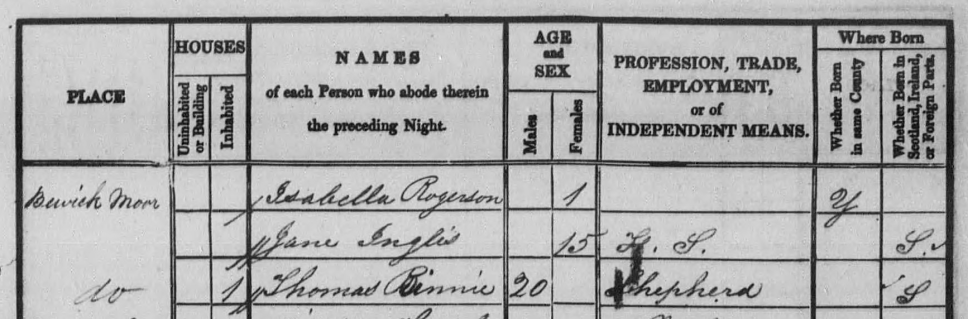 PLACE
HOUSES
Uninhabited or Building
Inhabited
NAMES
of each Person who abode therein
the preceding Night.
AGE
and
SEX
Males
Females
PROFESSION, TRADE,
EMPLOYMENT,
or of
INDEPENDENT MEANS.
Where Born
Whether Born in same County
Whether Born in Scotland, Ireland, or Foreign Parts.
Bewick Moor Isabella Rogerson 1 Y
Jane Inglis 15 F. S. S.
do 1 Thomas Binnie 20 Shepherd S